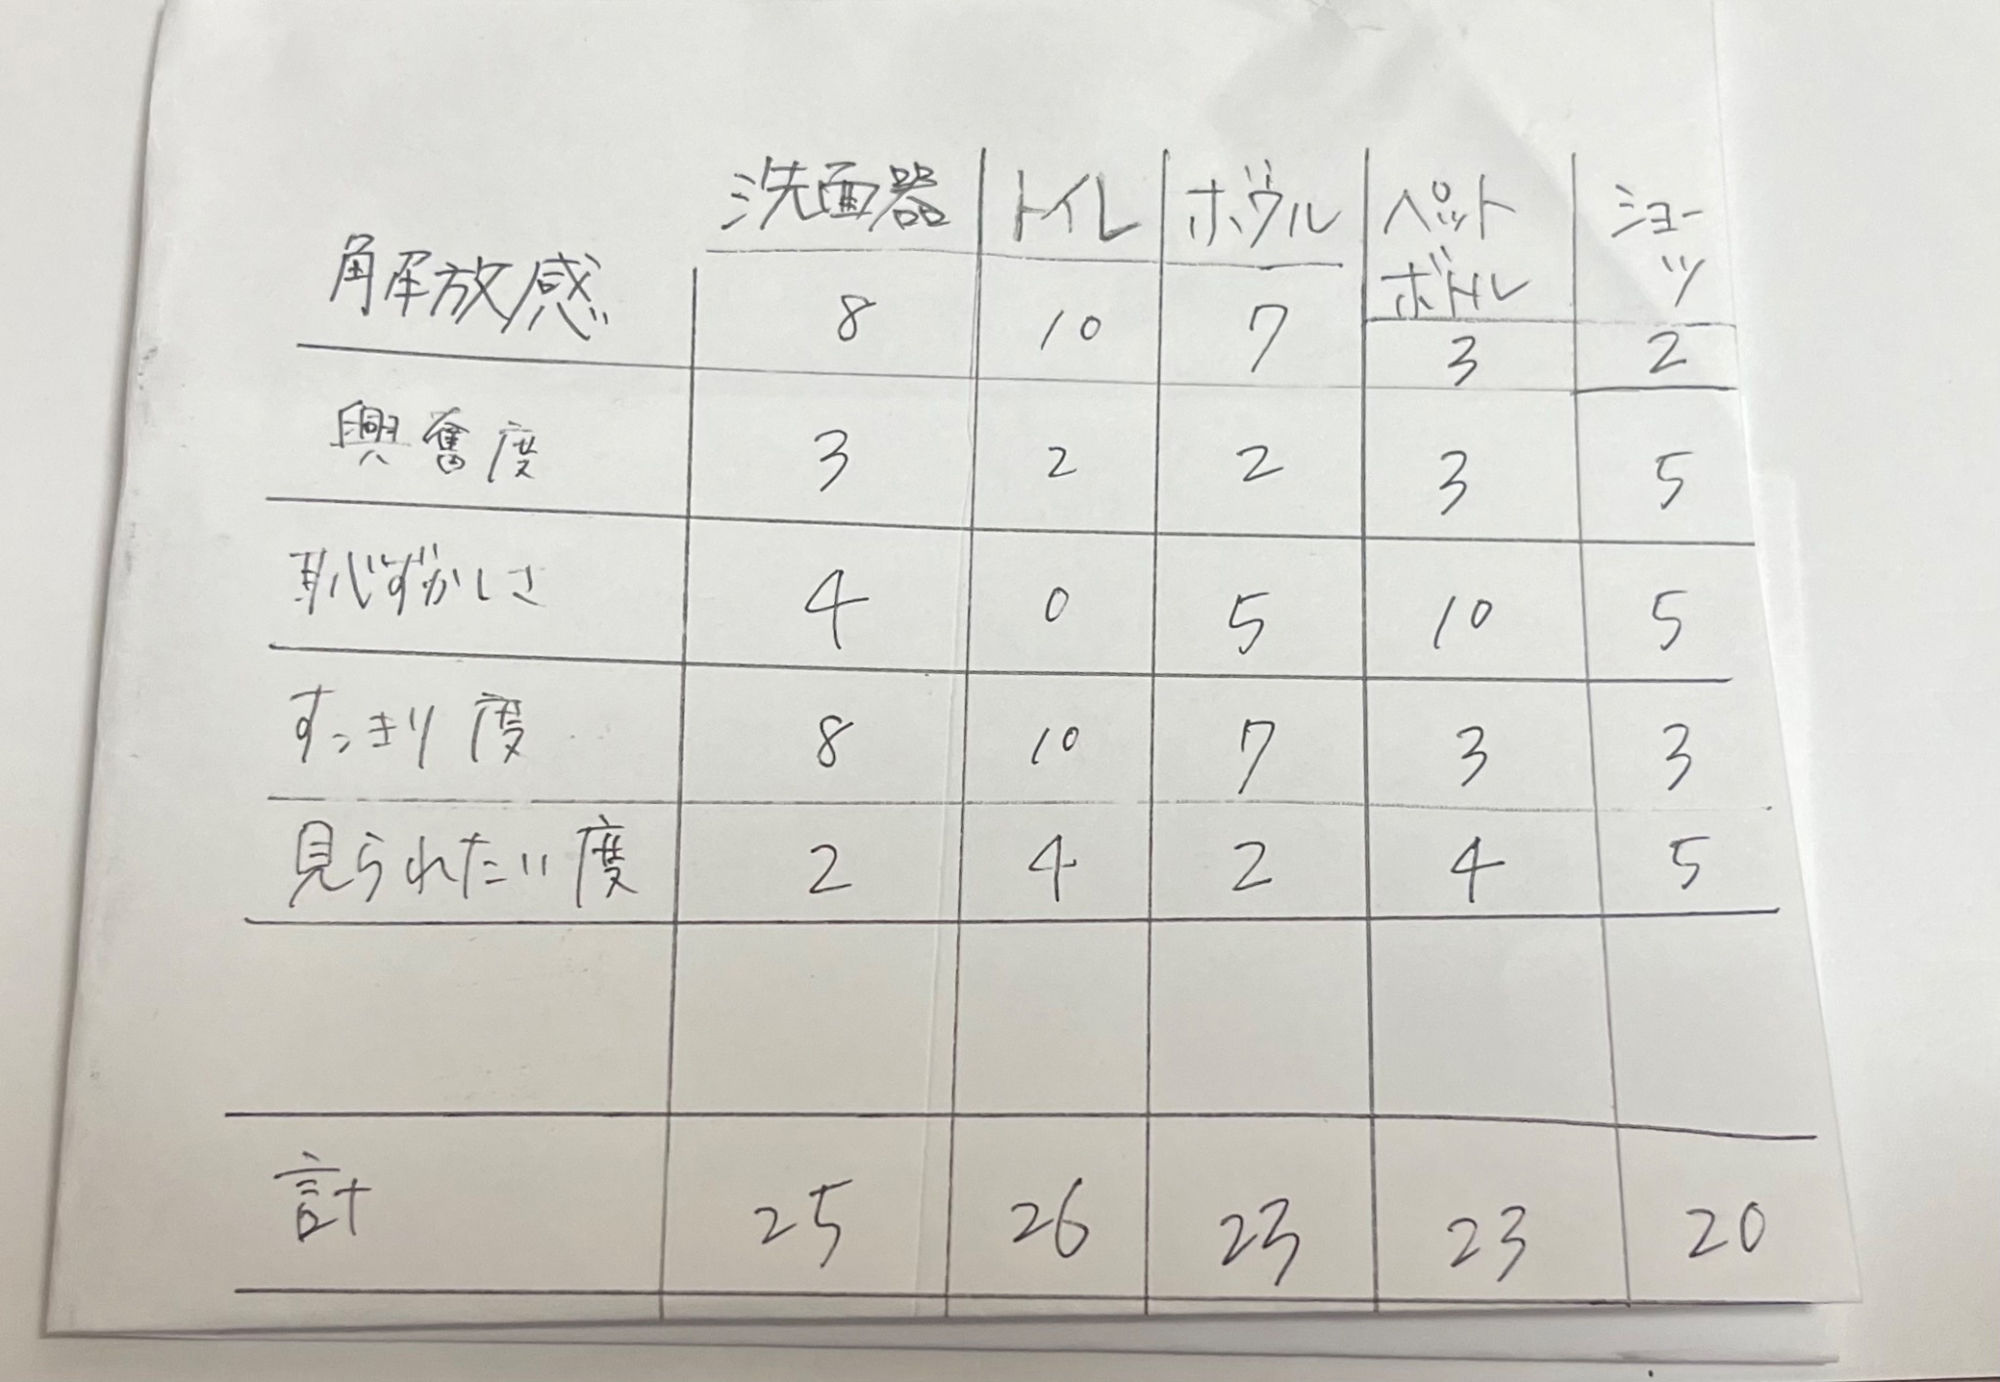 洗面器 トイレ ボウル ペットボトル ショーツ
解放感 8 10 7 3 2
興奮度 3 2 2 3 5
恥ずかしさ 4 0 5 10 5
すっきり度 8 10 7 3 3
見られたい度 2 4 2 4 5
計 25 26 23 23 20